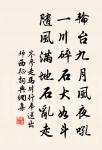 輪台九月風夜吼
一川碎石大如斗
隨風滿地石亂走
岑參走馬川行奉送出
師西征詞典網集